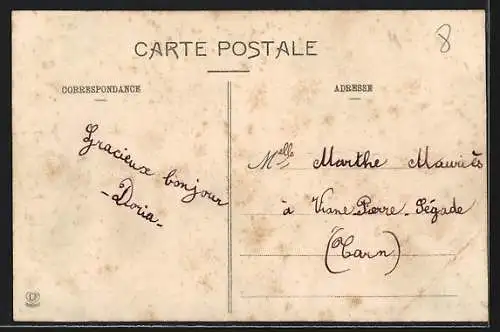 8
CARTE POSTALE
CORRESPONDANCE
ADRESSE
Gracieux bonjour
-Doria-
Melle Marthe Mauriès
à Viane-Pierre-Ségade
(Tarn)